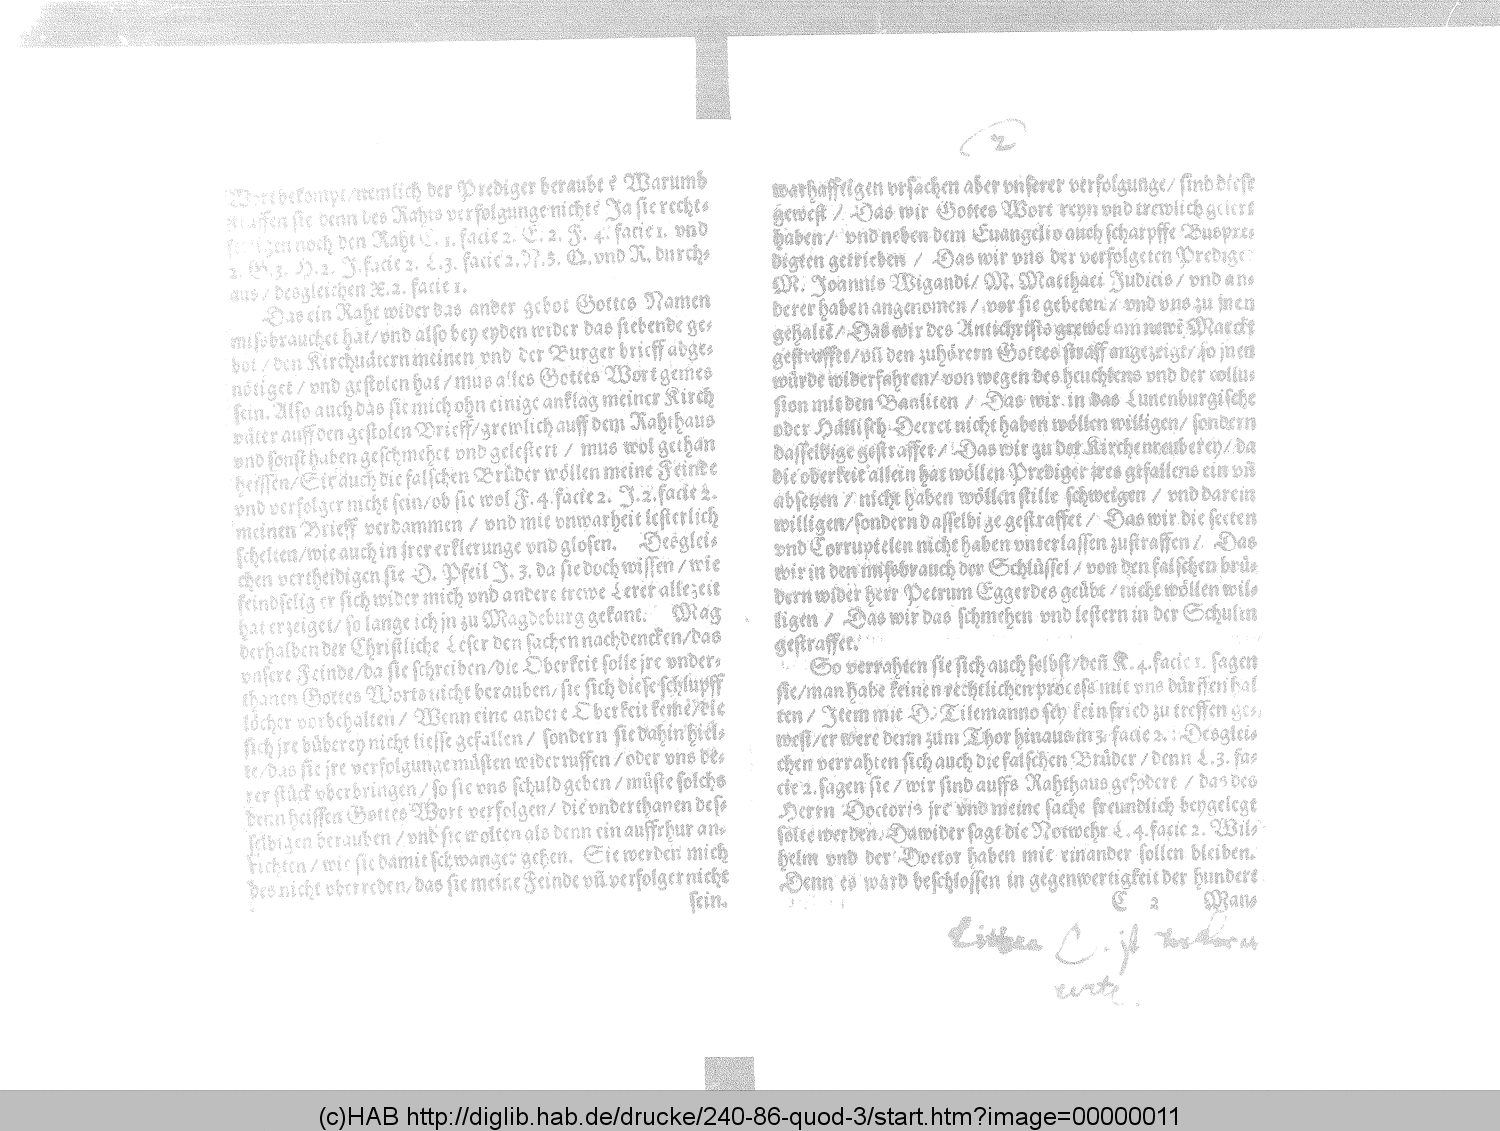 Wort bekompt/nemlich der Prediger beraubt? Warumb
straffen sie denn des Rahts verfolgunge nicht? Ja sie recht-
fertigen noch den Raht C. 1. facie 2. E. 2. F. 4. facie 1. vnd
2. G. 3. H. 2. J. facie 2. L. 3. facie 2. N. 3. Q. vnd R. durch-
aus/desgleichen X. 2. facie 1.
Das ein Raht wider das ander gebot Gottes Namen
missbrauchet hat/vnd also bey eyden wider das siebende ge-
bot/den Kirchuätern meinen vnd der Burger brieff abge-
nötiget/vnd gestolen hat/mus alles Gottes Wort gemes
sein. Also auch das sie mich ohn einige anklag meiner Kirch
väter auff den gestolen Brieff/grewlich auff dem Rahthaus
vnd sonst haben geschmehet vnd gelestert/mus wol gethan
heissen/Sir auch die falschen Brüder wöllen meine Feinde
vnd verfolger nicht sein/ob sie wol F. 4. facie 2. J. 2. facie 2.
meinen Brieff verdammen/vnd mit vnwarheit lesterlich
schelten/wie auch in jrer erklerunge vnd glosen. Desglei-
chen vertheidigen sie D. Pfeil J. 3. da sie doch wissen/wie
feindselig er sich wider mich vnd andere trewe Lerer allezeit
hat erzeiget/so lange ich jn zu Magdeburg gekant. Mag
derhalben der Christliche Leser den sachen nachdencken/das
vnsere Feinde/da sie schreiben/die Oberkeit solle jre vnder-
thanen Gottes Worts nicht berauben/sie sich diese schlupff
löcher vorbehalten/Wenn eine andere Oberkeit keme/die
sich jre büberey nicht liesse gefallen/sondern sie dahin hiel-
te/das sie jre verfolgunge müsten widerruffen/oder vns de-
rer stück vberbringen/so sie vns schuld geben/müste solchs
denn heissen Gottes Wort verfolgen/die vnderthanen des-
selbigen berauben/vnd sie wolten als denn ein auffrhur an-
richten/wie sie damit schwanger gehen. Sie werden mich
des nicht vberreden/das sie meine Feinde vñ verfolger nicht
sein.
2
warhafftigen vrsachen aber vnserer verfolgunge/sind diese
gewest/Das wir Gottes Wort reyn vnd trewlich gelert
haben/vnd neben dem Euangelio auch scharpffe Buspre-
digten getrieben/Das wir vns der verfolgeten Prediger
M. Joannis Wigandi/M. Matthaei Judicis/vnd an-
derer haben angenomen/vor sie gebeten/vnd vns zu jnen
gehalte/Das wir des Antichrists grewel am newē Marckt
gestraffet/vñ den zuhörern Gottes straff angezeigt/so jnen
würde widerfahren/von wegen des heuchlens vnd der collu-
sion mit den Baaliten/Das wir in das Lunenburgische
oder Hällisch Decret nicht haben wöllen willigen/sondern
dasselbige gestraffet/Das wir zu der Kirchenreuberey/da
die oberkeit allein hat wöllen Prediger jres gefallens ein vñ
absetzen/nicht haben wöllen stille schweigen/vnd darein
willigen/sondern dasselbige gestraffet/Das wir die secten
vnd Corruptelen nicht haben vnterlassen zustraffen/Das
wir in den missbrauch der Schlüssel/von den falschen brü-
dern wider herr Petrum Eggerdes geübt/nicht wöllen wil-
ligen/Das wir das schmehen vnd lestern in der Schulen
gestraffet.
So verrahten sie sich auch selbst/deñ K. 4. facie 1. sagen
sie/man habe keinen rechtlichen process mit vns dürffen hal
ten/Item mit D. Tilemanno sey kein fried zu treffen ge-
west/er were denn zum Thor hinaus M 3. facie 2. Desglei-
chen verrahten sich auch die falschen Brüder/denn L. 3. fa-
cie 2. sagen sie/wir sind auffs Rahthaus gefodert/das des
Herrn Doctoris jre vnd meine sache freundlich beygelegt
solte werden. Dawider sagt die Notwehr L. 4. facie 2. Wil-
helm vnd der Doctor haben mit einander sollen bleiben.
Denn es ward beschlossen in gegenwertigkeit der hundert
C 2 Man-
C. ist
(c)HAB http://diglib.hab.de/drucke/240-86-quod-3/start.htm?image=00000011